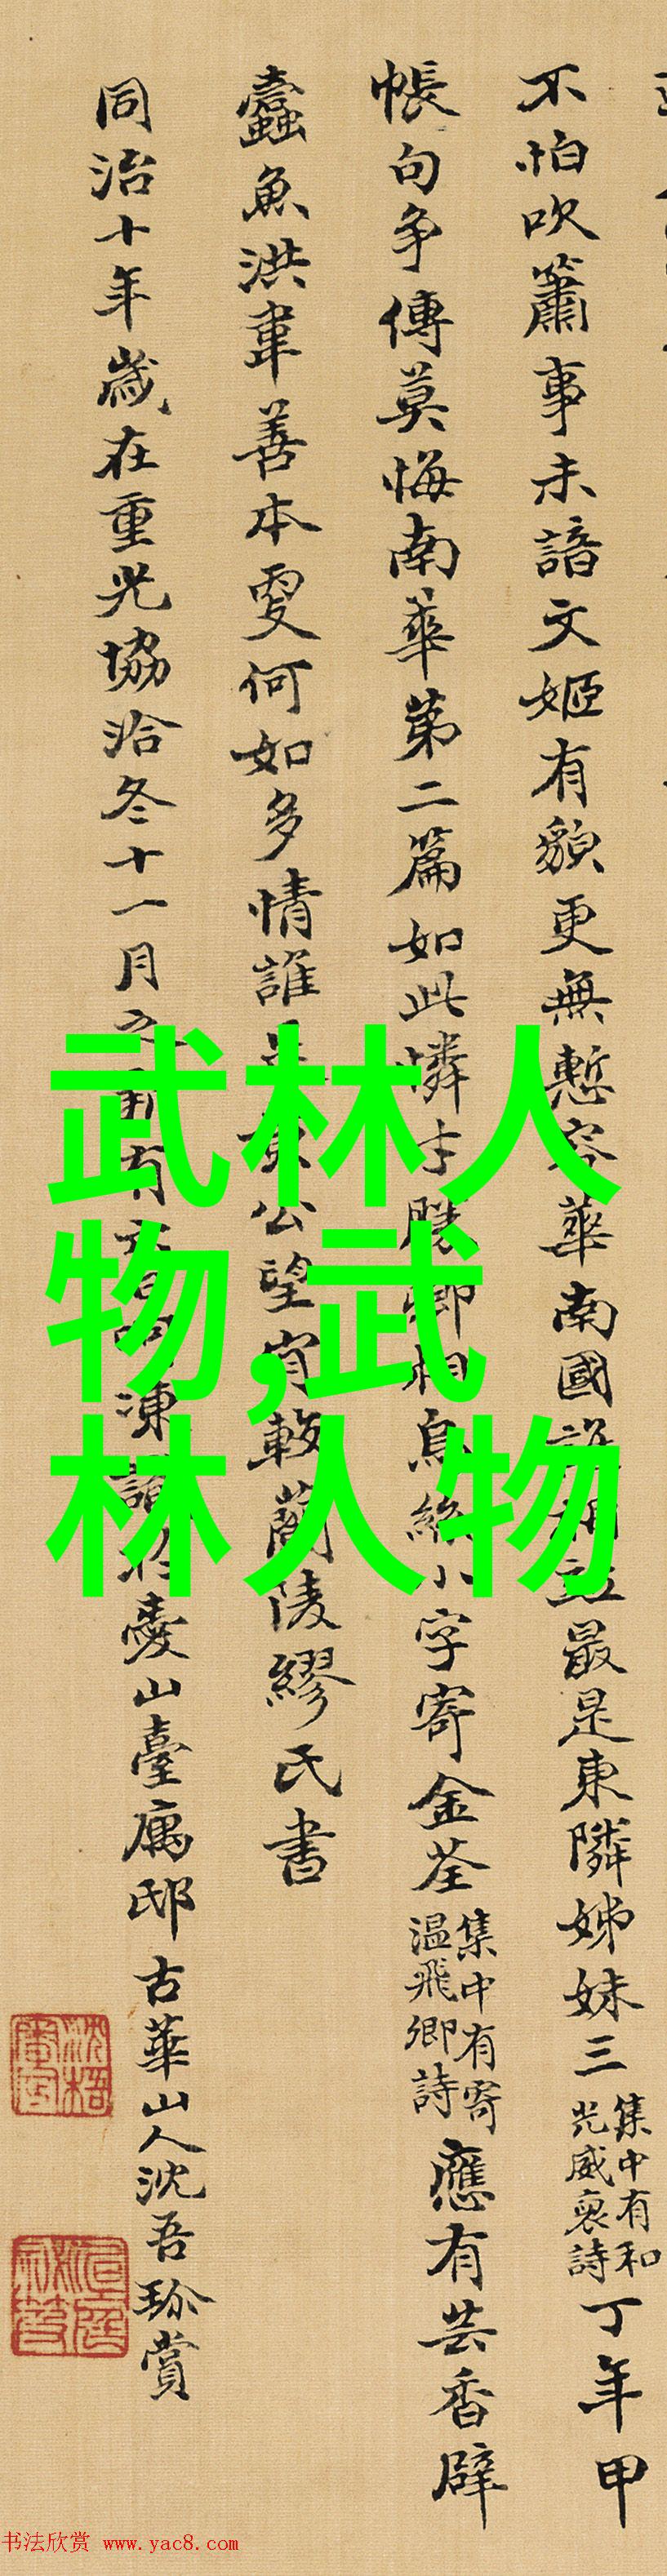 不怕吹簫事未諳文姬有貌更無慙容華南國誰最是東隣姊妹三集中有和光威裒詩丁年甲
帳句争傳莫悔南華第二篇如此憐才勝卿相烏絲小字寄金荃集中有寄溫飛卿詩應有芸香辟
蠹魚洪韋善本更何如多情誰公望肯較蘭陵繆氏書
同治十年歲在重光協洽冬十一月之凍山臺寓邸古華山人沈吾珎賞
武林人
物,武
林人物
书法欣赏 www.yac8.com